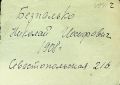 2
Безпалько
Николай Иосифович
1908 г.
Севастопольская 216